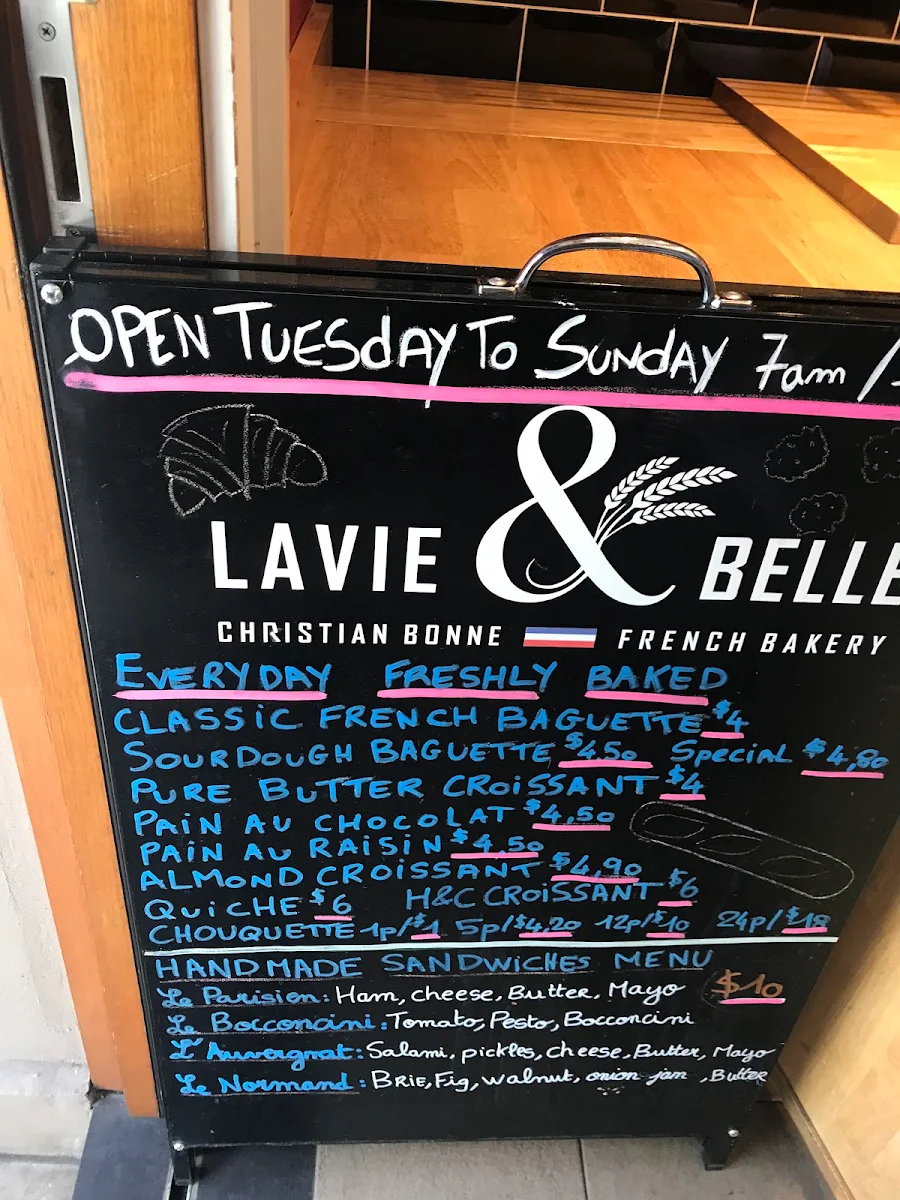 OPEN TUESdAY To SUNdAY 7am /
LAVIE & BELLE
CHRISTIAN BONNE FRENCH BAKERY
EVERYDAY FRESHLY BAKED
CLASSiC FRENCH BAGUETTE $4
SOURDOUGH BAGUETTE $4,50 SpeciaL $4,80
PURE BUTTER CROiSSANT $4
PAiN AU CHOCOLAT $4,50
PAiN AU RAiSiN $4,50
ALMOND CROiSSANT $4,90
QUiCHE $6 H&C CROiSSANT $6
CHOUQUETTE 1p/$1 5p/$4,20 12p/$10 24p/$18
HANDMADE SANDWiCHEs MENU
Le Parisien: Ham, cheese, Butter, Mayo $10
Le Bocconcini: Tomato, Pesto, Bocconcini
L'Auvergnat: Salami, pickles, cheese, Butter, Mayo
Le Normand: BRiE, Fig, walnut, onion jam, Butter